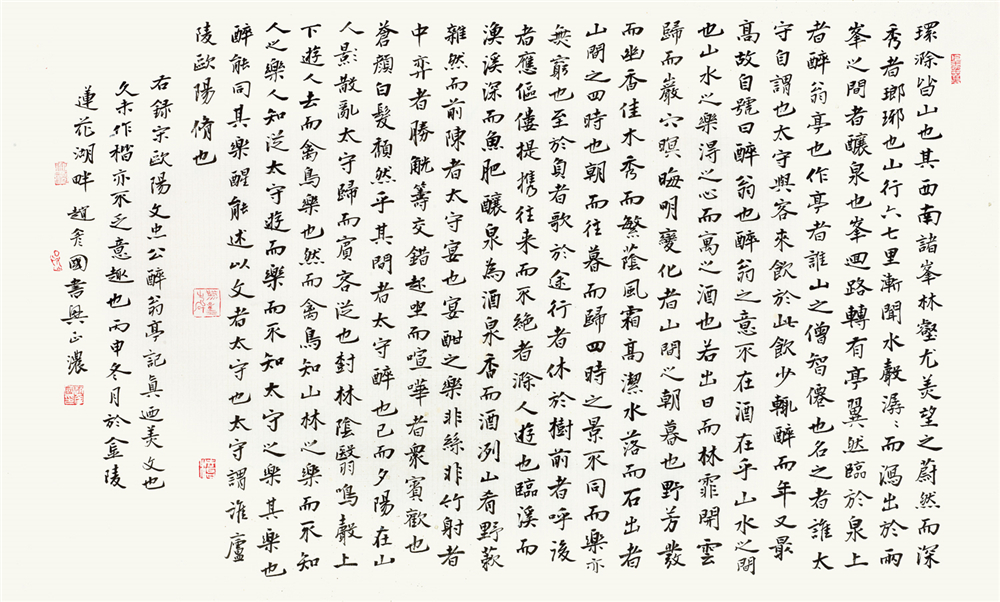 環滁皆山也其西南諸峯林壑尤美望之蔚然而深
秀者瑯琊也山行六七里漸聞水聲潺〻而瀉出於兩
峯之間者釀泉也峯迴路轉有亭翼然臨於泉上
者醉翁亭也作亭者誰山之僧智僊也名之者誰太
守自謂也太守與客來飲於此飲少輒醉而年又最
高故自號曰醉翁也醉翁之意不在酒在乎山水之間
也山水之樂得之心而寓之酒也若出日而林霏開雲
歸而巖穴暝晦明變化者山間之朝暮也野芳發
而幽香佳木秀而繁蔭風霜高潔水落而石出者
山間之四時也朝而往暮而歸四時之景不同而樂亦
無窮也至於負者歌於途行者休於樹前者呼後
者應傴僂提攜往来而不絕者滁人遊也臨溪而
漁溪深而魚肥釀泉為酒泉香而酒洌山肴野蔌
雜然而前陳者太守宴也宴酣之樂非絲非竹射者
中弈者勝觥籌交錯起坐而喧嘩者衆賓歡也
蒼顔白髮頹然乎其間者太守醉也已而夕陽在山
人影散亂太守歸而賓客從也樹林陰翳鳴聲上
下遊人去而禽鳥樂也然而禽鳥知山林之樂而不知
人之樂人知從太守遊而樂而不知太守之樂其樂也
醉能同其樂醒能述以文者太守也太守謂誰廬
陵歐陽脩也
右錄宋歐陽文忠公醉翁亭記真迺美文也
久未作楷亦不乏意趣也丙申冬月於金陵
蓮花湖畔 趙彥國書興正濃